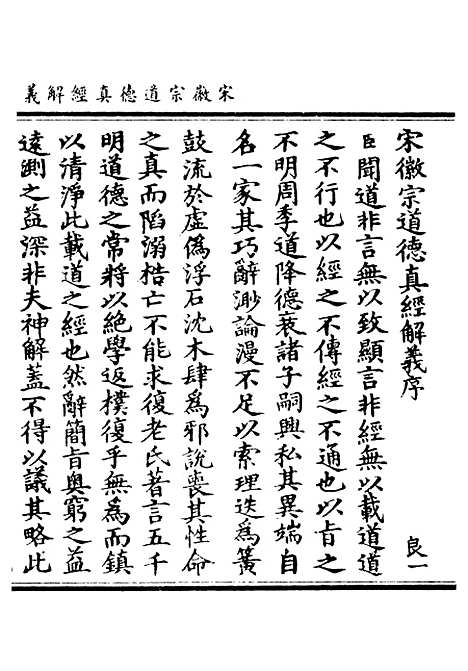 宋徽宗道德真經解義
宋徽宗道德真經解義序　良一
臣聞道非言無以致顯言非經無以載道道
之不行也以經之不傳經之不通也以旨之
不明周季道降德衰諸子嗣興私其異端自
名一家其巧辭渺論漫不足以索理迭為簧
鼓流於虛偽浮石沈木肆為邪說喪其性命
之真而陷溺梏亡不能求復老氏著言五千
明道德之常將以絕學返樸復乎無為而鎮
以清淨此載道之經也然辭簡旨奧窮之益
遠測之益深非夫神解蓋不得以議其略此